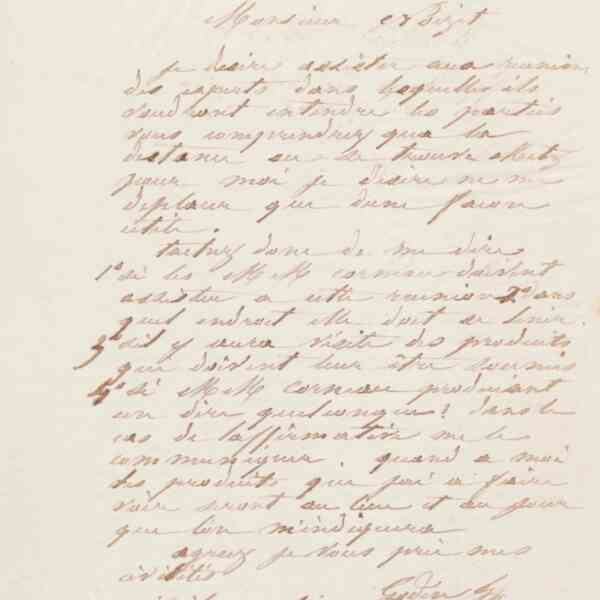 Monsieur Bizet
je desire assister aux reunions
des experts dans lesquelles ils
voudront entendre les parties
vous comprendrez que la
distance ou se trouve
pour moi je desire ne me
deplacer que dune facon
utile.
tachez donc de me dire
1o si les MM corneau doivent
assister a cette reunion 2o dans
quel endroit elle doit se tenir.
3o sil y aura visite des produits
que doivent leur être soumis
4o si MM Corneau produisent
un dire quelconque! dans le
cas de laffirmative me le
communiquer. quand a moi
les produits que jai a faire
voir seront au lieu et au jour
que lon m'indiquera
agreez je vous prie mes
civilités
Godin